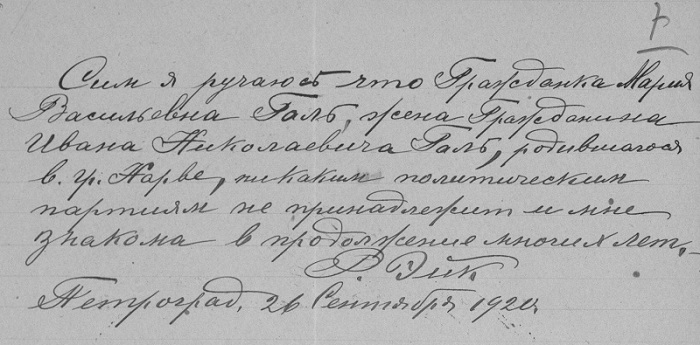 7
Сим я ручаюсь что Гражданка Мария
Васильевна Галь, жена Гражданина
Ивана Николаевича Галь, родившагося
в. гр. Нарве, никаким политическим
партиям не принадлежит и мне
знакома в продолжение многих лет.–
Р. Эйк.
Петроград, 26 Сентября 1920